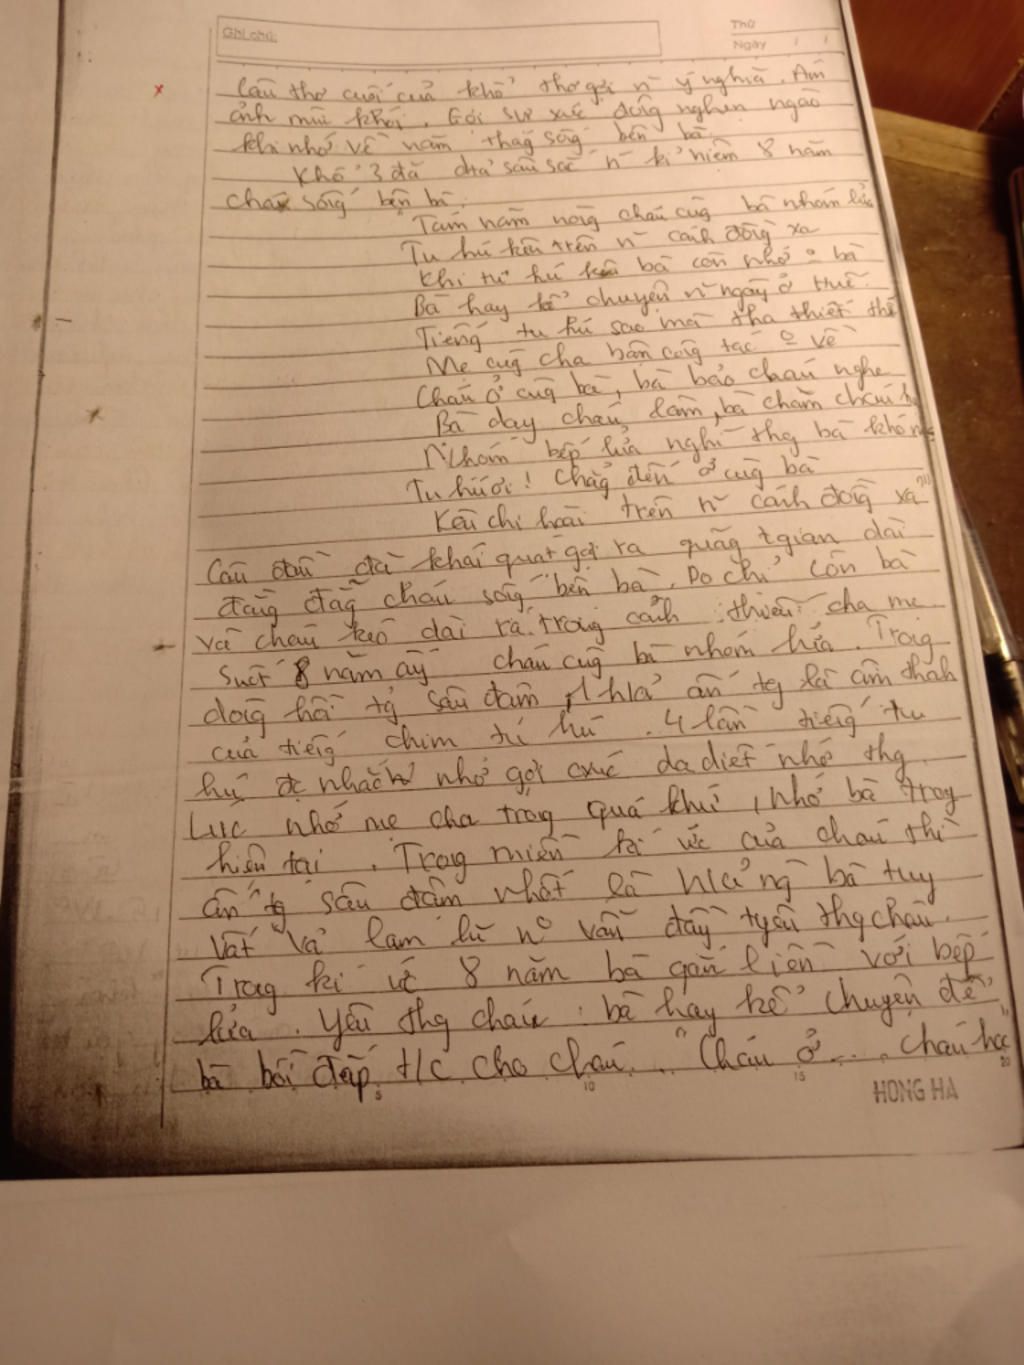 Ghi chú:
Thứ
Ngày / /
Câu thơ cuối của khổ thơ gợi n~ ý nghĩa. Ám
ảnh mùi khói. Gợi sự xúc động nghẹn ngào
khi nhớ về năm thág sốg bên bà.
Khổ 3 đã sâu sắc n~ kỉ niệm 8 năm
cháu sống bên bà.
"Tám năm ròng cháu cùg bà nhóm lửa
Tu hú kêu trên n~ cánh đồng xa
Khi tu hú kêu bà còn nhớ o bà
Bà hay kể chuyện n~ ngày ở Huế.
Tiếng tu hú sao mà tha thiết thế
Mẹ cùg cha bận côg tác o về
Cháu ở cùg bà, bà bảo cháu nghe
Bà dạy cháu làm, bà chăm cháu h
Nhóm bếp lửa nghĩ thg bà khó n
Tu hú ơi! Chẳg đến ở cùg bà
Kêu chi hoài trên n~ cánh đồng xa"
Câu đầu đã khái quát gợi ra quãg tgian dài
đằg đẵg cháu sốg bên bà. Do chỉ còn bà
và cháu kéo dài ra trog cảnh thiếu cha mẹ.
Suốt 8 năm ấy cháu cùg bà nhóm lửa. Trog
dòg hồi tg sâu đậm, ấn tg là âm thah
của tiếg chim tú hú. 4 lần tiếg tu
hú đc nhắc nhở gợi cxúc da diết nhớ thg.
Lúc nhớ mẹ cha trog quá khứ, nhớ bà trog
hiện tại. Trog miền kí ức của cháu thì
ấn tg sâu đậm nhất là h/ảnh bà tuy
vất vả lam lũ n° vẫn đầy tyêu thg cháu.
Trog kí ức 8 năm bà gắn liền với bếp
lửa. Yêu thg cháu bà hay kể chuyện để
bà bồi đắp t/c cho cháu... "Cháu ở... cháu học"
5 10 15 20
HONG HA